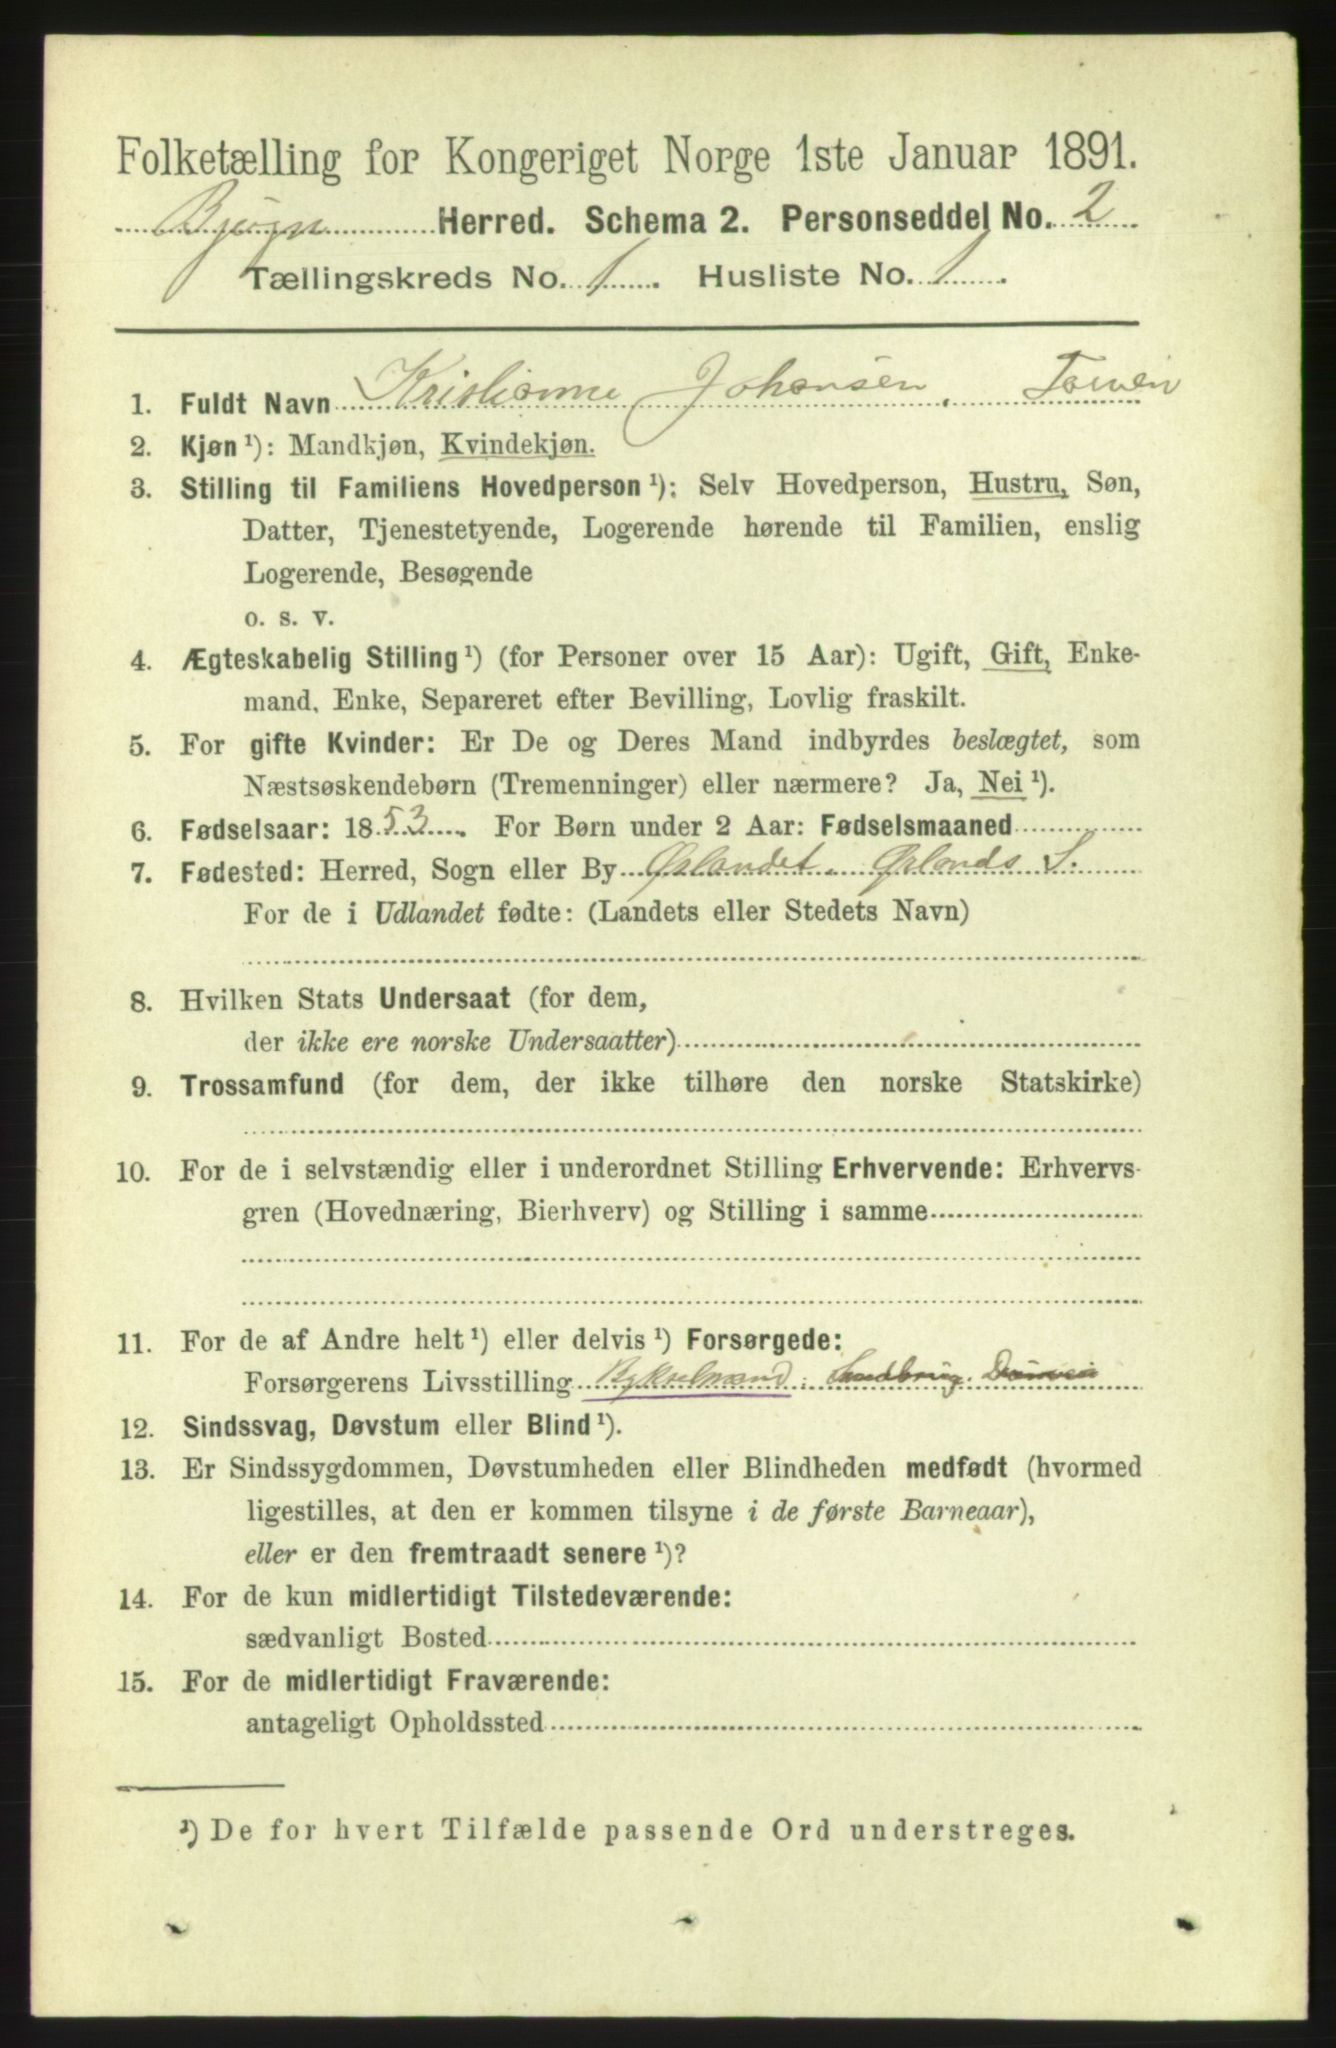 Folketælling for Kongeriget Norge 1ste Januar 1891.
Bjugn Herred. Schema 2. Personseddel No. 2
Tællingskreds No. 1. Husliste No. 1.
1. Fuldt Navn Kristianne Johansen,
2. Kjøn ¹): Mandkjøn, Kvindekjøn.
3. Stilling til Familiens Hovedperson ¹): Selv Hovedperson, Hustru, Søn,
Datter, Tjenestetyende, Logerende hørende til Familien, enslig
Logerende, Besøgende
o. s. v.
4. Ægteskabelig Stilling ¹) (for Personer over 15 Aar): Ugift, Gift, Enke-
mand, Enke, Separeret efter Bevilling, Lovlig fraskilt.
5. For gifte Kvinder: Er De og Deres Mand indbyrdes beslægtet, som
Næstsøskendebørn (Tremenninger) eller nærmere? Ja, Nei ¹).
6. Fødselsaar: 1853. For Børn under 2 Aar: Fødselsmaaned
7. Fødested: Herred, Sogn eller By Ørlandet. Ørlands S.
For de i Udlandet fødte: (Landets eller Stedets Navn)
8. Hvilken Stats Undersaat (for dem,
der ikke ere norske Undersaatter)
9. Trossamfund (for dem, der ikke tilhøre den norske Statskirke)
10. For de i selvstændig eller i underordnet Stilling Erhvervende: Erhvervs-
gren (Hovednæring, Bierhverv) og Stilling i samme
11. For de af Andre helt ¹) eller delvis ¹) Forsørgede:
Forsørgerens Livsstilling Bykselmand:
12. Sindssvag, Døvstum eller Blind ¹).
13. Er Sindssygdommen, Døvstumheden eller Blindheden medfødt (hvormed
ligestilles, at den er kommen tilsyne i de første Barneaar),
eller er den fremtraadt senere ¹)?
14. For de kun midlertidigt Tilstedeværende:
sædvanligt Bosted
15. For de midlertidigt Fraværende:
antageligt Opholdssted
¹) De for hvert Tilfælde passende Ord understreges.